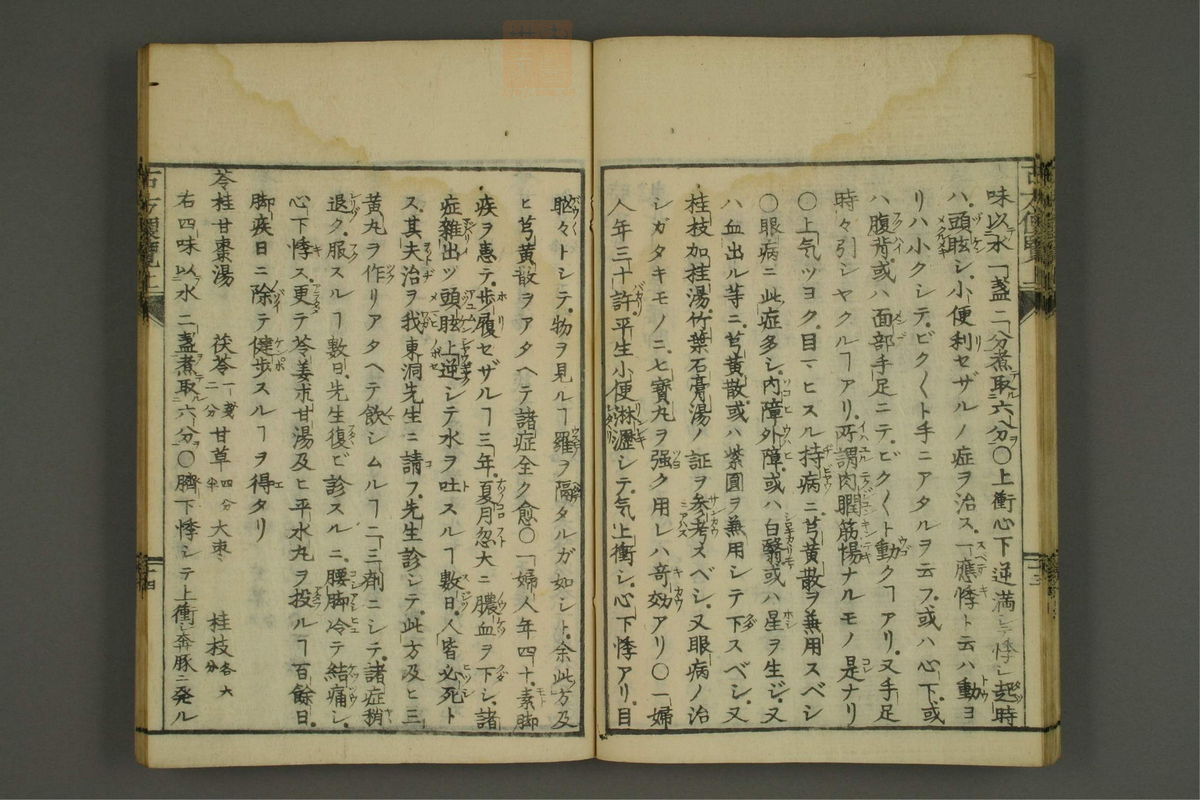 味以水一盞二分煮取六分〇上衝心下逆満シテ悸シ起時
ハ頭眩シ小便利セザルノ症ヲ治ス「應悸ト云ハ動ヨ
リハ小クシテビク〱ト手ニアタルヲ云フ或ハ心下或
ハ腹背或ハ面部手足ニテビク〱ト動クヿアリ又手足
時々引シヤクルヿアリ所謂肉瞤筋惕ナルモノ是ナリ
〇上気ツヨク目マヒスル持病ニ芎黄散ヲ兼用スベシ
〇眼病ニ此症多シ内障外障或ハ白翳或ハ星ヲ生ジ又
ハ血出ル等ニ芎黄散或ハ紫圓ヲ兼用シテ下スベシ又
桂枝加桂湯竹葉石膏湯ノ証ヲ参考スベシ又眼病ノ治
シガタキモノニ七寶丸ヲ强ク用レハ竒効アリ〇一婦
人年三十許平生小便淋瀝シテ気上衝シ心下悸アリ目
䀮々トシテ物ヲ見ルヿ羅ヲ隔タルガ如シト余此方及
ヒ芎黄散ヲアタヘテ諸症全ク愈〇一婦人年四十素脚
疾ヲ患テ歩履セザルヿ三年夏月忽大ニ膿血ヲ下シ諸
症雜出ツ頭眩上逆シテ水ヲ吐スルヿ數日人皆必死ト
ス其夫治ヲ我東洞先生ニ請フ先生診シテ此方及ヒ三
黄丸ヲ作リアタヘテ飲シムルヿ二三劑ニシテ諸症稍
退ク服スルヿ數日先生復ビ診スルニ腰脚冷テ結痛シ
心下悸ス更テ苓姜朮甘湯及ヒ平水丸ヲ投ルヿ百餘日
脚疾日ニ除テ健歩スルヿヲ得タリ
苓桂甘棗湯 茯苓一錢二分 甘草四分半 大枣 桂枝各六分
右四味以水二盞煮取六分〇臍下悸シテ上衝シ奔豚ニ発ル
古方便覽二
十四